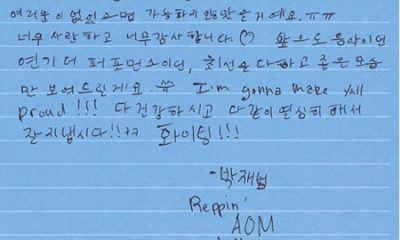 여러분이 없었으면 가능하지 않았을거예요.ㅠㅠ
너무 사랑하고 너무감사합니다.♡ 앞으로 음악이던
연기 더 퍼포먼스이던, 최선을 다하고 좋은 모습
만 보여드릴게요. ㅠ I'm gonna make yall
proud!!! 다 건강하시고 다같이 열심히 해서
잘 지냅시다!!ㅋㅋ 화이팅!!!
-박재범
Reppin'
AOM